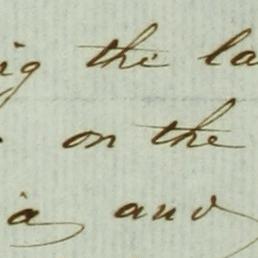 the la
on the
and